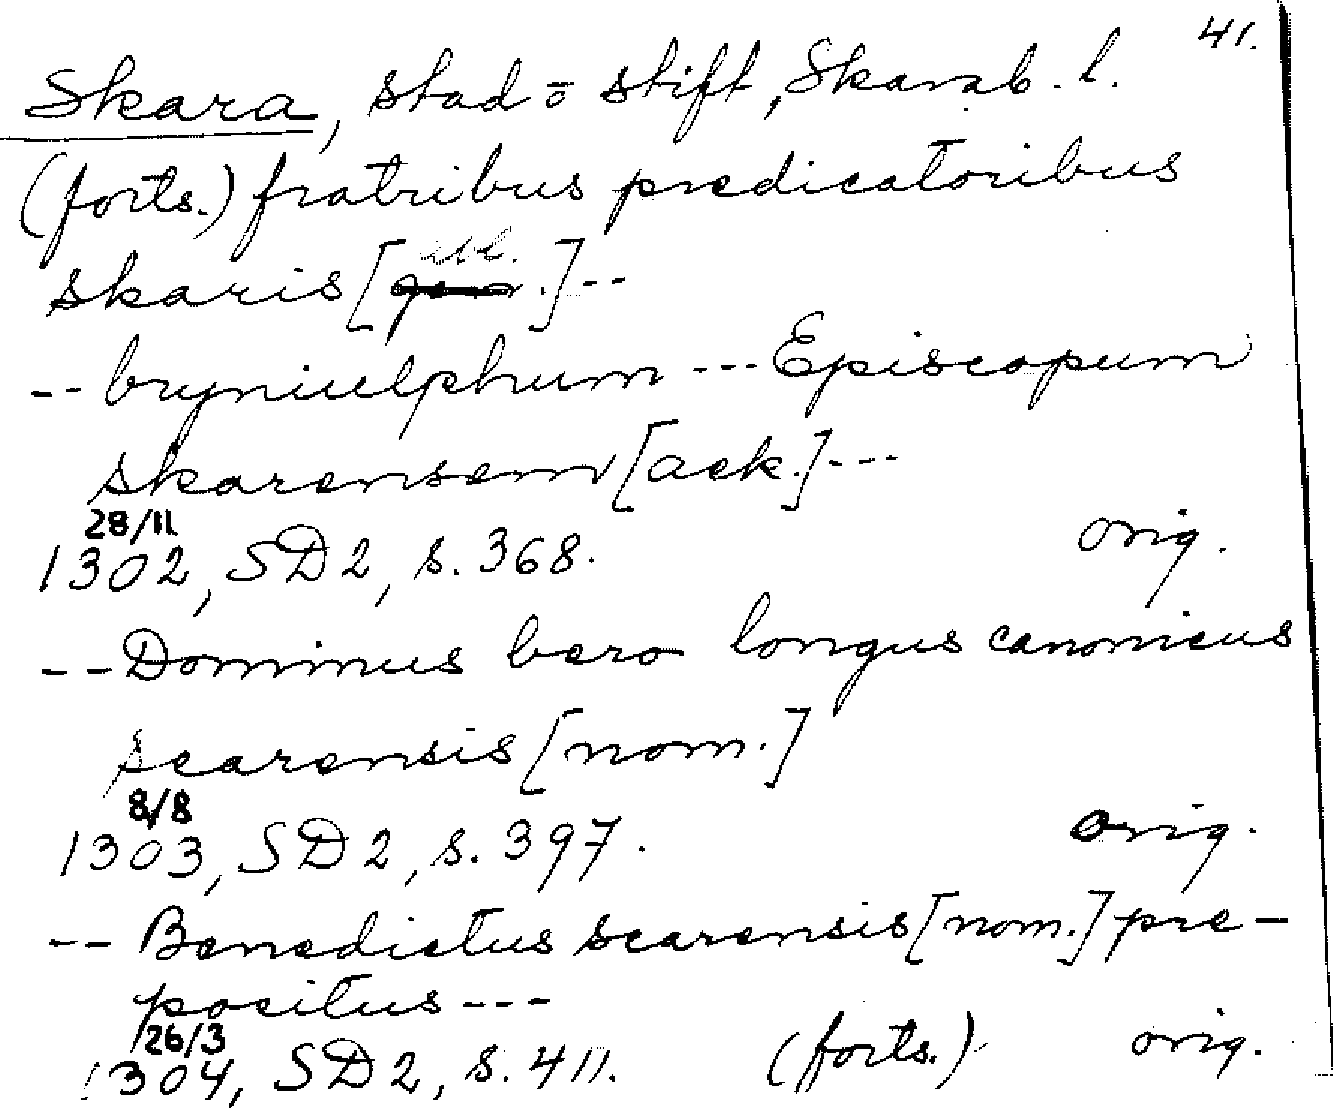 41.
Skara, stad o stift, Skarab. l.
(forts.) fratribus predicatoribus
abl.
skaris [.] --
-- bryniulphum --- Episcopum
skarensem [ack.] ---
28/11
1302, SD 2, s. 368. orig.
-- Dominus bero longus canonicus
scarensis [nom.]
8/8
1303, SD 2, s. 397. orig.
-- Benedictus scarensis [nom.] pre-
positus ---
26/3
1304, SD 2, s. 411. (forts.) orig.